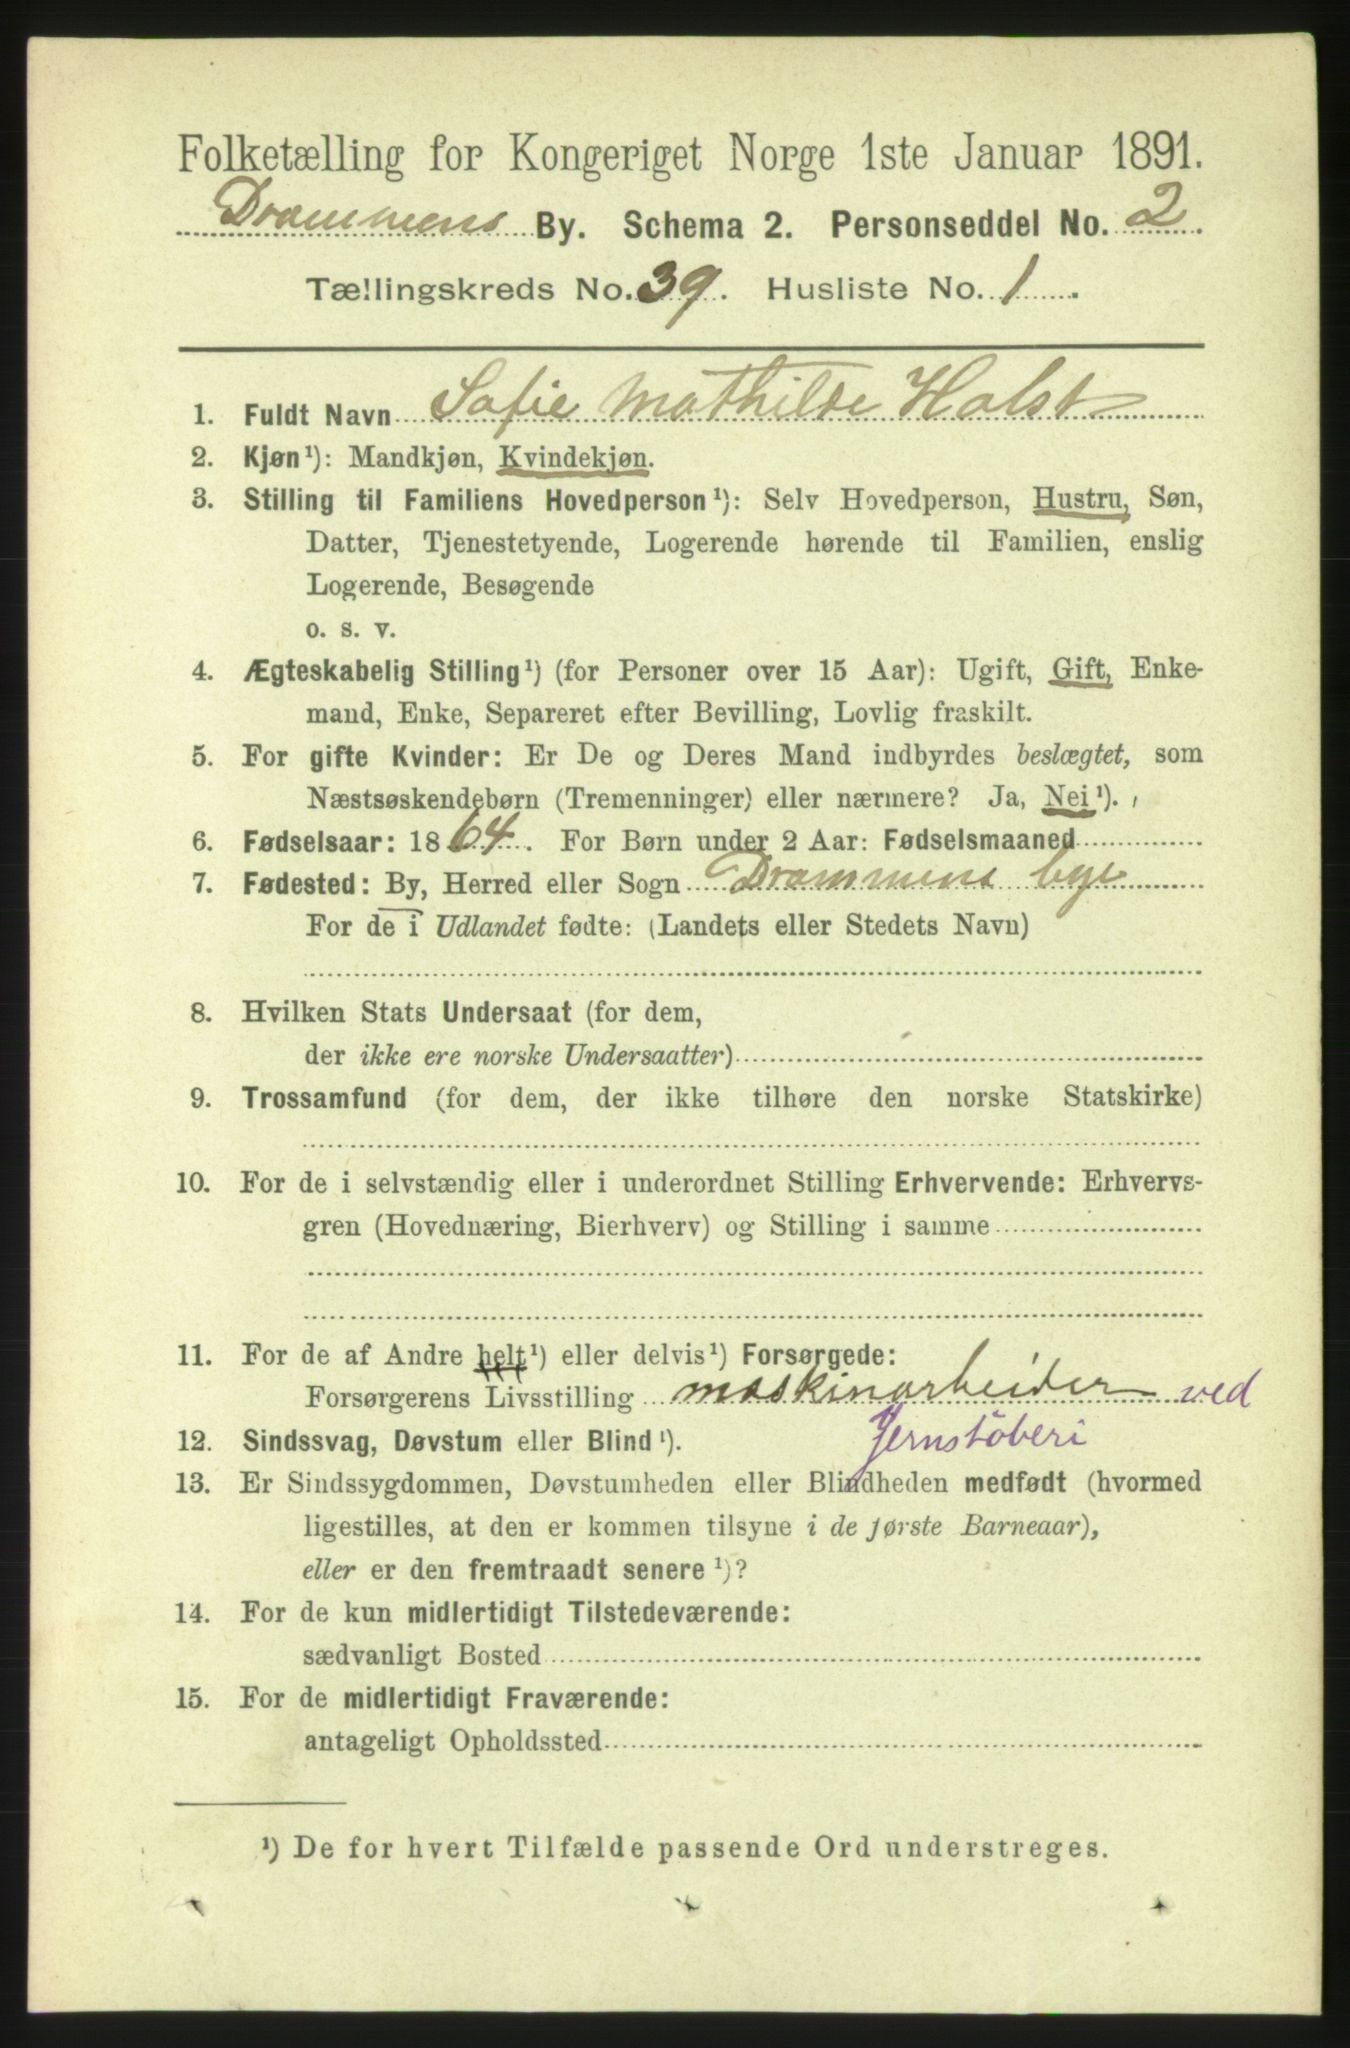 Folketælling for Kongeriget Norge 1ste Januar 1891.
Drammens By. Schema 2. Personseddel No. 2.
Tællingskreds No. 39. Husliste No. 1.
1. Fuldt Navn Sofie Mathilde Holst
2. Kjøn¹): Mandkjøn, Kvindekjøn.
3. Stilling til Familiens Hovedperson¹): Selv Hovedperson, Hustru, Søn,
Datter, Tjenestetyende, Logerende hørende til Familien, enslig
Logerende, Besøgende
o. s. v.
4. Ægteskabelig Stilling¹) (for Personer over 15 Aar): Ugift, Gift, Enke-
mand, Enke, Separeret efter Bevilling, Lovlig fraskilt.
5. For gifte Kvinder: Er De og Deres Mand indbyrdes beslægtet, som
Næstsøskendebørn (Tremenninger) eller nærmere? Ja, Nei¹).
6. Fødselsaar: 1864. For Børn under 2 Aar: Fødselsmaaned
7. Fødested: By, Herred eller Sogn Drammens bye
For de i Udlandet fødte: (Landets eller Stedets Navn)
8. Hvilken Stats Undersaat (for dem,
der ikke ere norske Undersaatter)
9. Trossamfund (for dem, der ikke tilhøre den norske Statskirke)
10. For de i selvstændig eller i underordnet Stilling Erhvervende: Erhvervs-
gren (Hovednæring, Bierhverv) og Stilling i samme
11. For de af Andre helt¹) eller delvis¹) Forsørgede:
Forsørgerens Livsstilling maskinarbeider ved
Jernstöberi
12. Sindssvag, Døvstum eller Blind¹).
13. Er Sindssygdommen, Døvstumheden eller Blindheden medfødt (hvormed
ligestilles, at den er kommen tilsyne i de første Barneaar),
eller er den fremtraadt senere¹)?
14. For de kun midlertidigt Tilstedeværende:
sædvanligt Bosted
15. For de midlertidigt Fraværende:
antageligt Opholdssted
¹) De for hvert Tilfælde passende Ord understreges.